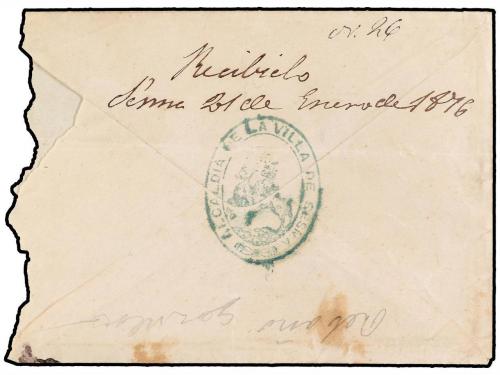 Nº. 26
Recibido
Sesma 21 de Enero de 1876
ALCALDIA DE LA VILLA DE SESMA